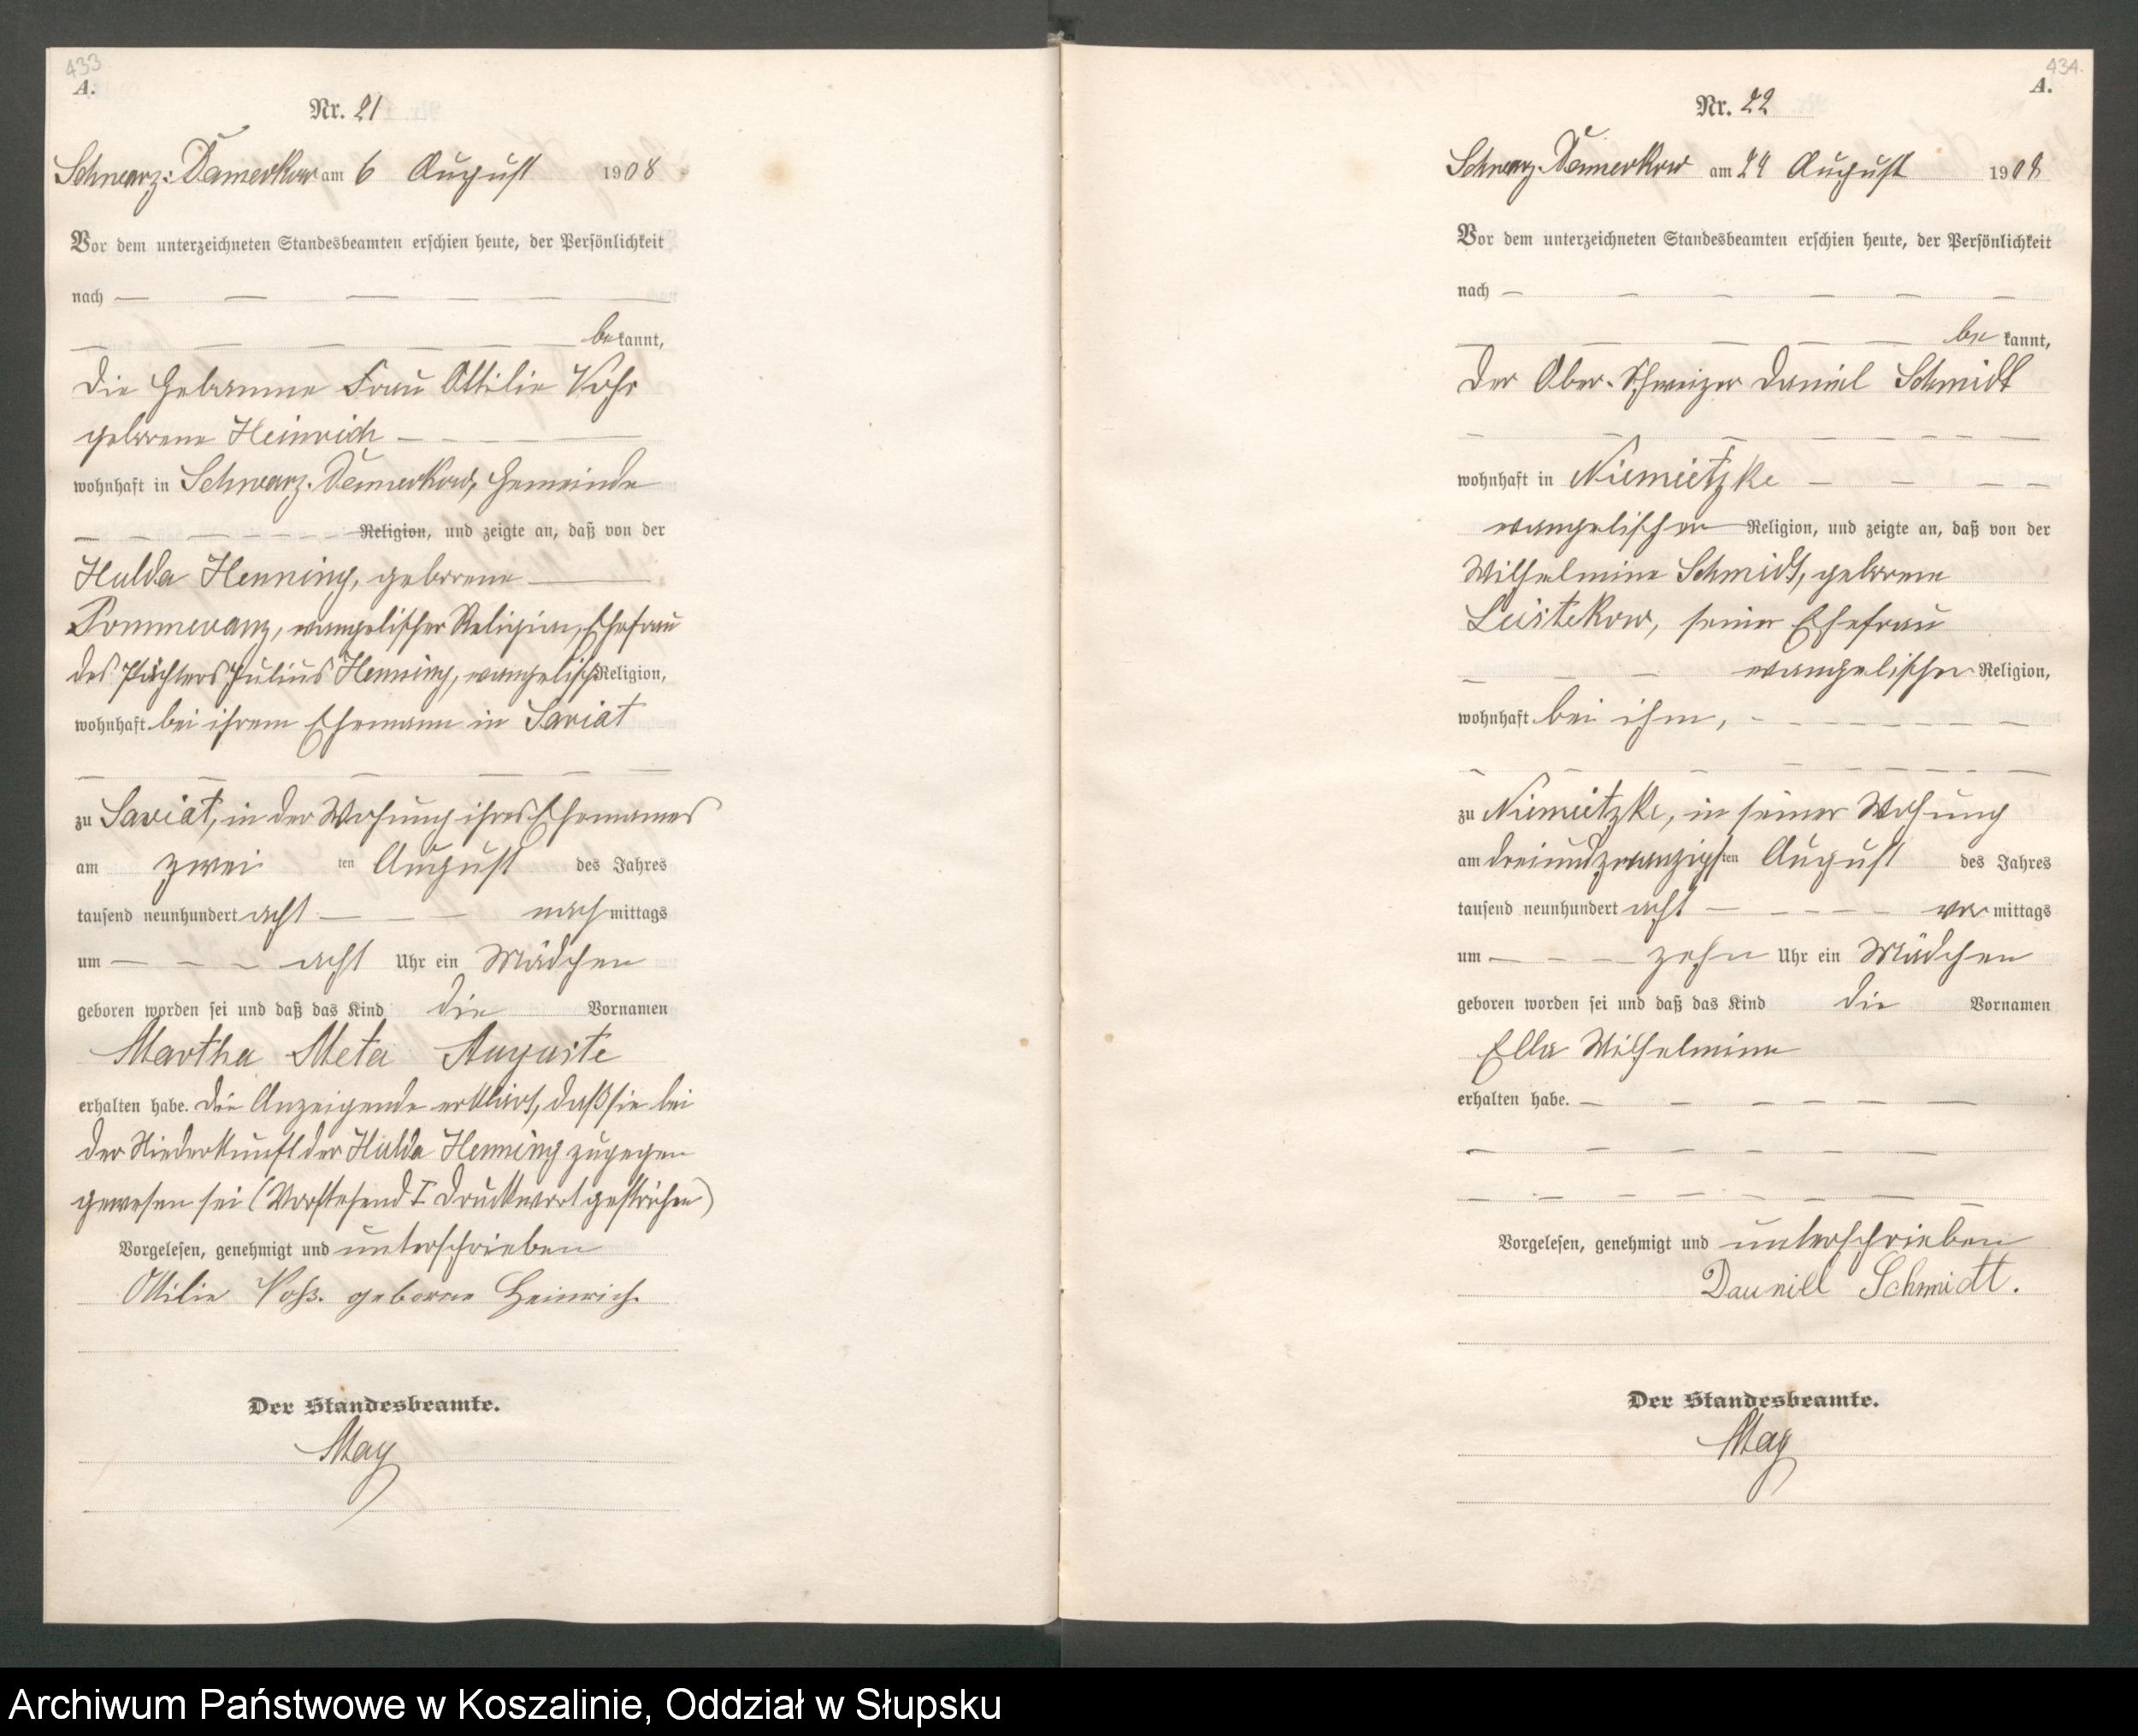 433
A.
Nr. 21
Schwarz-Damerkow am 6 August 1908
Vor dem unterzeichneten Standesbeamten erschien heute, der Persönlichkeit
nach
bekannt,
die Hebamme Frau Ottilie Voß
geborene Heinrich
wohnhaft in Schwarz-Damerkow, Gemeinde
Religion, und zeigte an, daß von der
Hulda Henning, geborene
Pommeranz, evangelischer Religion, Ehefrau
des Pächters Julius Henning, evangelisch Religion,
wohnhaft bei ihrem Ehemann in Saviat
zu Saviat, in der Wohnung ihres Ehemannes
am zwei ten August des Jahres
tausend neunhundert acht nach mittags
um acht Uhr ein Mädchen
geboren worden sei und daß das Kind die Vornamen
Martha Meta Auguste
erhalten habe. Die Anzeigende erklärt, daß sie bei
der Niederkunft der Hulda Henning zugegen
gewesen sei (Vorstehend 1 Druckwort gestrichen)
Vorgelesen, genehmigt und unterschrieben
Ottilie Voß. geborne Heinrich.
Der Standesbeamte.
May
434.
A.
Nr. 22
Schwarz-Damerkow am 24 August 1908
Vor dem unterzeichneten Standesbeamten erschien heute, der Persönlichkeit
nach
be kannt,
der Ober-Schweizer Daniel Schmidt
wohnhaft in Niemietzke
evangelischer Religion, und zeigte an, daß von der
Wilhelmine Schmidt, geborene
Leistekow, seiner Ehefrau
evangelischer Religion,
wohnhaft bei ihm,
zu Niemietzke, in seiner Wohnung
am dreiundzwanzigsten August des Jahres
tausend neunhundert acht vor mittags
um zehn Uhr ein Mädchen
geboren worden sei und daß das Kind die Vornamen
Ella Wilhelmine
erhalten habe.
Vorgelesen, genehmigt und unterschrieben
Dauniel Schmidt.
Der Standesbeamte.
May
Archiwum Państwowe w Koszalinie, Oddział w Słupsku